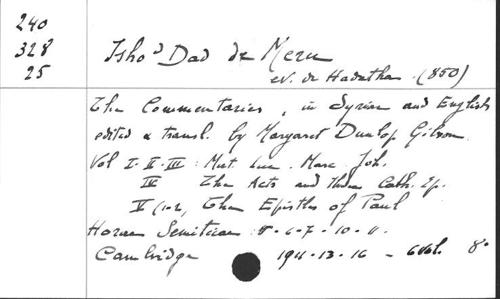 240
328
25
Isho' Dad de Meru
ev. de Hadatha. (850)
The Commentaries, in Syriac and English
edited & transl. by Margaret Dunlop Gibson
Vol I-II-III. Mat. Luc. Marc. Joh.
IV The Acts and three Cath. Ep.
V (1-2, The Epistles of Paul
Horae Semiticae: 5-6-7-10-11.
Cambridge 1911-13-16 - 6 vol. 8°